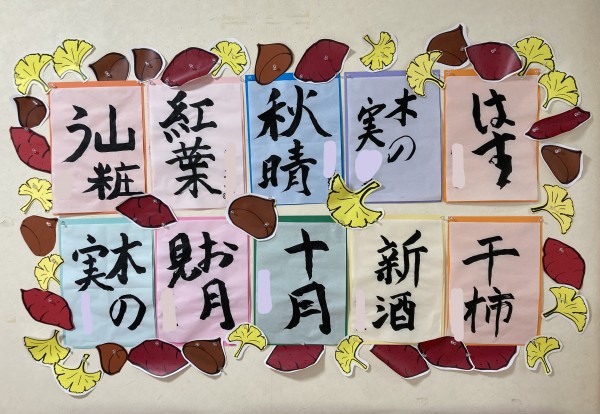 はす
木の
実
秋晴
紅葉
山粧
う
干柿
新酒
十月
お月
見
木の
実